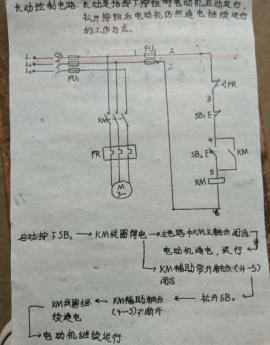 长动控制电路: 长动是指按下按钮时电动机启动运行,
松开按钮后电动机仍然通电继续运行
的工作方式.
L₁
L₂
L₃
QS
FU₁
1
FU₂
2
FR
3
SB₁
4
SB₂
KM
5
KM
6
KM
FR
M
3~
启动按下SB₂ → KM线圈得电 → 主电路中KM主触点闭合
电动机通电, 运行
KM辅助常开触点(4-5)
闭合
KM线圈继 ← KM辅助触点 ← 松开SB₂
续通电 (4-5)不断开
电动机继续运行